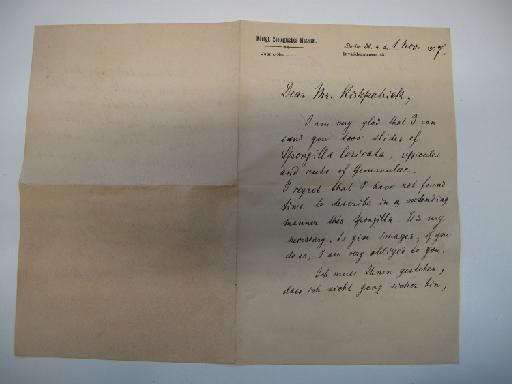 Königl. Zoologisches Museum.
Berlin N. 4. d. 1 Nov. 1897.
Invalidenstrasse 43.
Dear Mr. Kirkpatrick,
I am very glad that I can
send you two slides of
Spongilla loricata, spicules
and cuts of Gemmulae.
I regret that I have not found
time to describe in a
manner this Spongilla. It is
necessary, to give images, if you
do so, I am very obliged to you.
Ich muss Ihnen gestehen,
dass ich nicht ganz sicher bin,